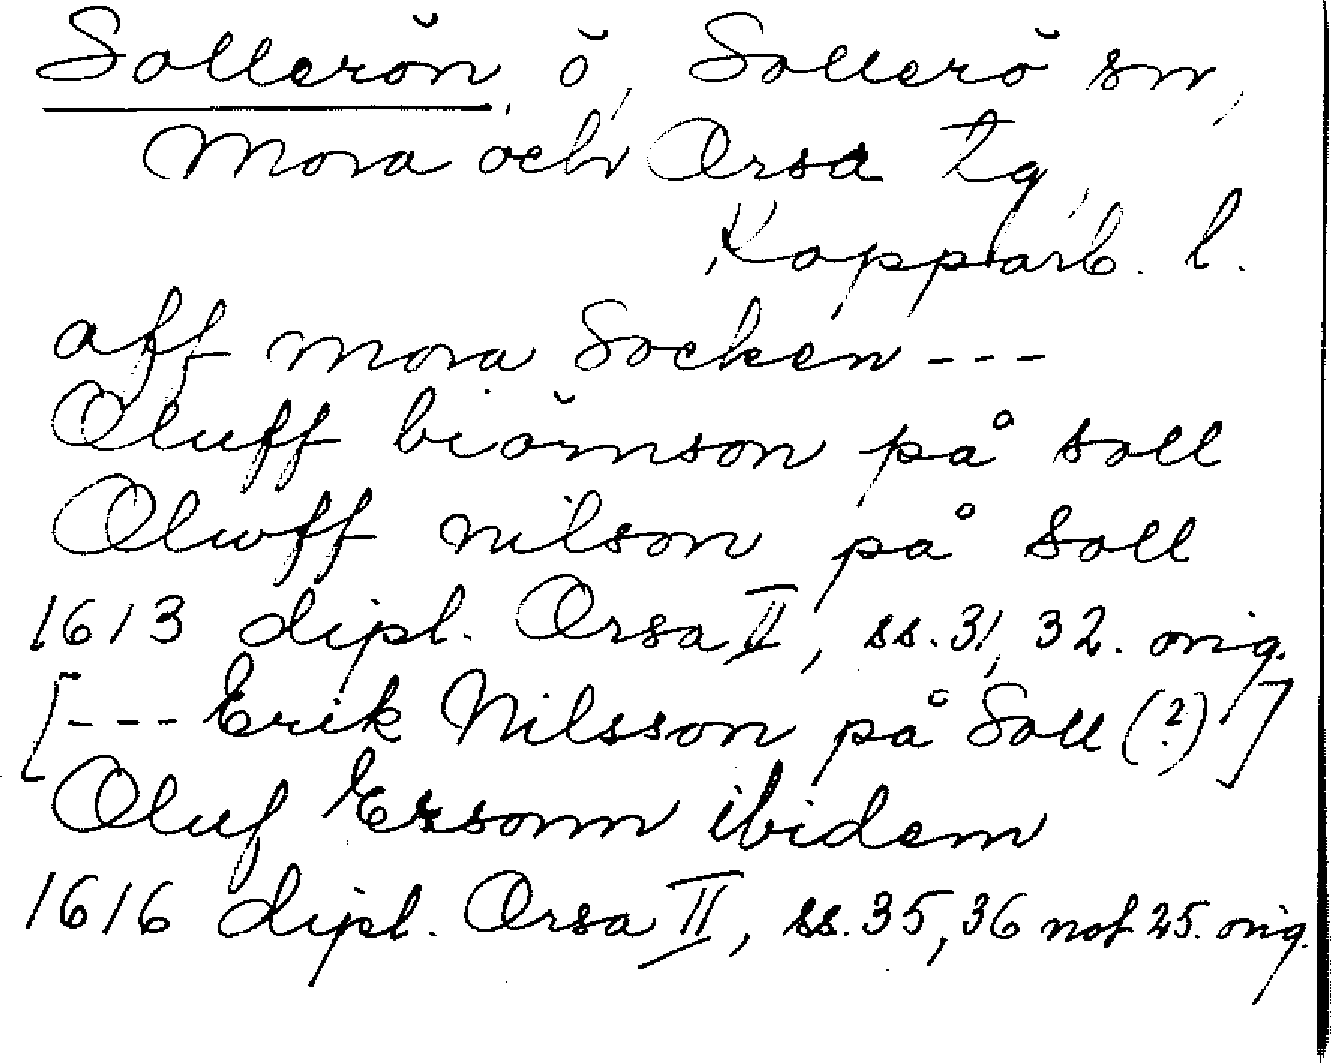 Sollerön, ö, Sollerö sn,
Mora och Orsa tg,
Kopparb. l.
aff mora Socken ---
Oluff biörnson på soll
Olwff nilson på Soll
1613 dipl. Orsa II, ss. 31, 32. orig.
[--- Erik Nilsson på Soll (?)]
Oluf Ersonn ibidem
1616 dipl. Orsa II, ss. 35, 36 not 25. orig.